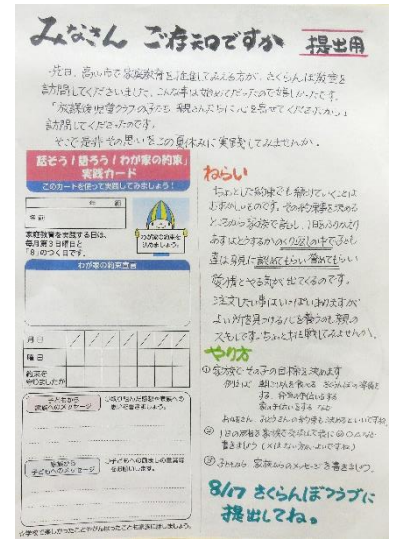 みなさん ご存知ですか 提出用
先日、高山市で家庭教育を推進してみえる方が、さくらんぼ教室を
訪問してくださいまして、こんな事は初めてだったので嬉しかったです。
「放課後児童クラブの子たち、親さんたちに心を寄せてくださったか。」
訪問してくださったのです。
そこで是非その思いをこの夏休みに実践してみませんか。
話そう！語ろう！わが家の約束
実践カード
このカードを使って実践してみましょう！
年 組
名前
家庭教育を実践する日は、
毎月第3日曜日と
「8」のつく日です。
わが家の約束
を決めましょう。
わが家の約束宣言
月日
曜日
約束を
やりましたか
子どもから
家族へのメッセージ
家族から
子どもへのメッセージ
ねらい
ちょっとした約束でも続けていくことは
むずかしいものです。その約束事を決める
ところから家族で話し、1日ふりかえり
あすはどうするかのくり返しの中で子ども
達は身に認めてもらい誉めてもらい
愛情とやる気が出てくるのです。
注文したい事はいっぱいありますが
よい所を見つける心を養うのも親の
スキルです。ちょっと挑戦してみませんか。
やり方
① 家族でその子の目標を決めます
② 1日の活動を家族で交流した後に◎○△など
書きましょう
③ 子どもから 家族からのメッセージを書きましょう。
8/17 さくらんぼクラブに
提出してね。